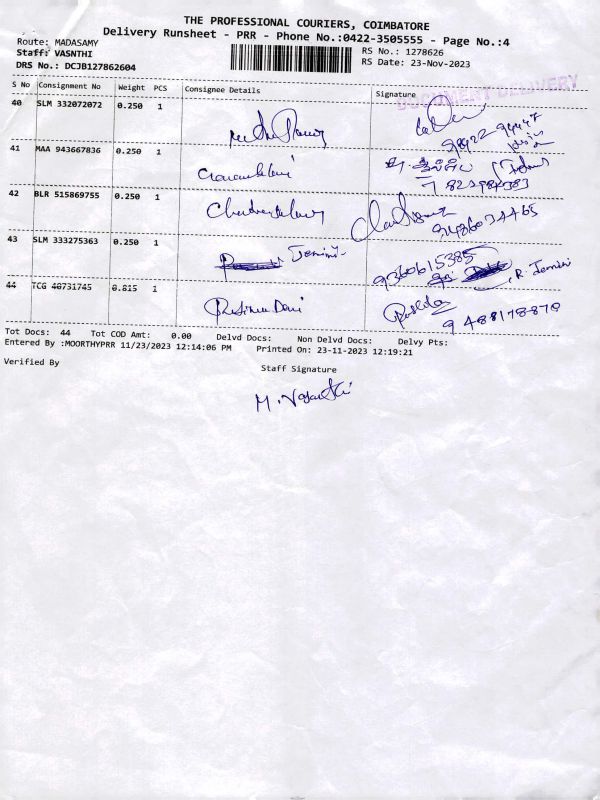 THE PROFESSIONAL COURIERS, COIMBATORE
Delivery Runsheet - PRR - Phone No.:0422-3505555 - Page No.:4
Route: MADASAMY
Staff: VASNTHI
DRS No.: DCJB127862604
RS No.: 1278626
RS Date: 23-Nov-2023
DOCUMENT DELIVERY
S No Consignment No Weight PCS Consignee Details Signature
40 SLM 332072072 0.250 1
41 MAA 943667836 0.250 1
42 BLR 515869755 0.250 1
9486074465
43 SLM 333275363 0.250 1 Jemini
9360615385
R. Jemini
44 TCG 40731745 0.815 1
9488178870
Tot Docs: 44 Tot COD Amt: 0.00 Delvd Docs: Non Delvd Docs: Delvy Pts:
Entered By :MOORTHYPRR 11/23/2023 12:14:06 PM Printed On: 23-11-2023 12:19:21
Verified By
Staff Signature
M. Vasanthi